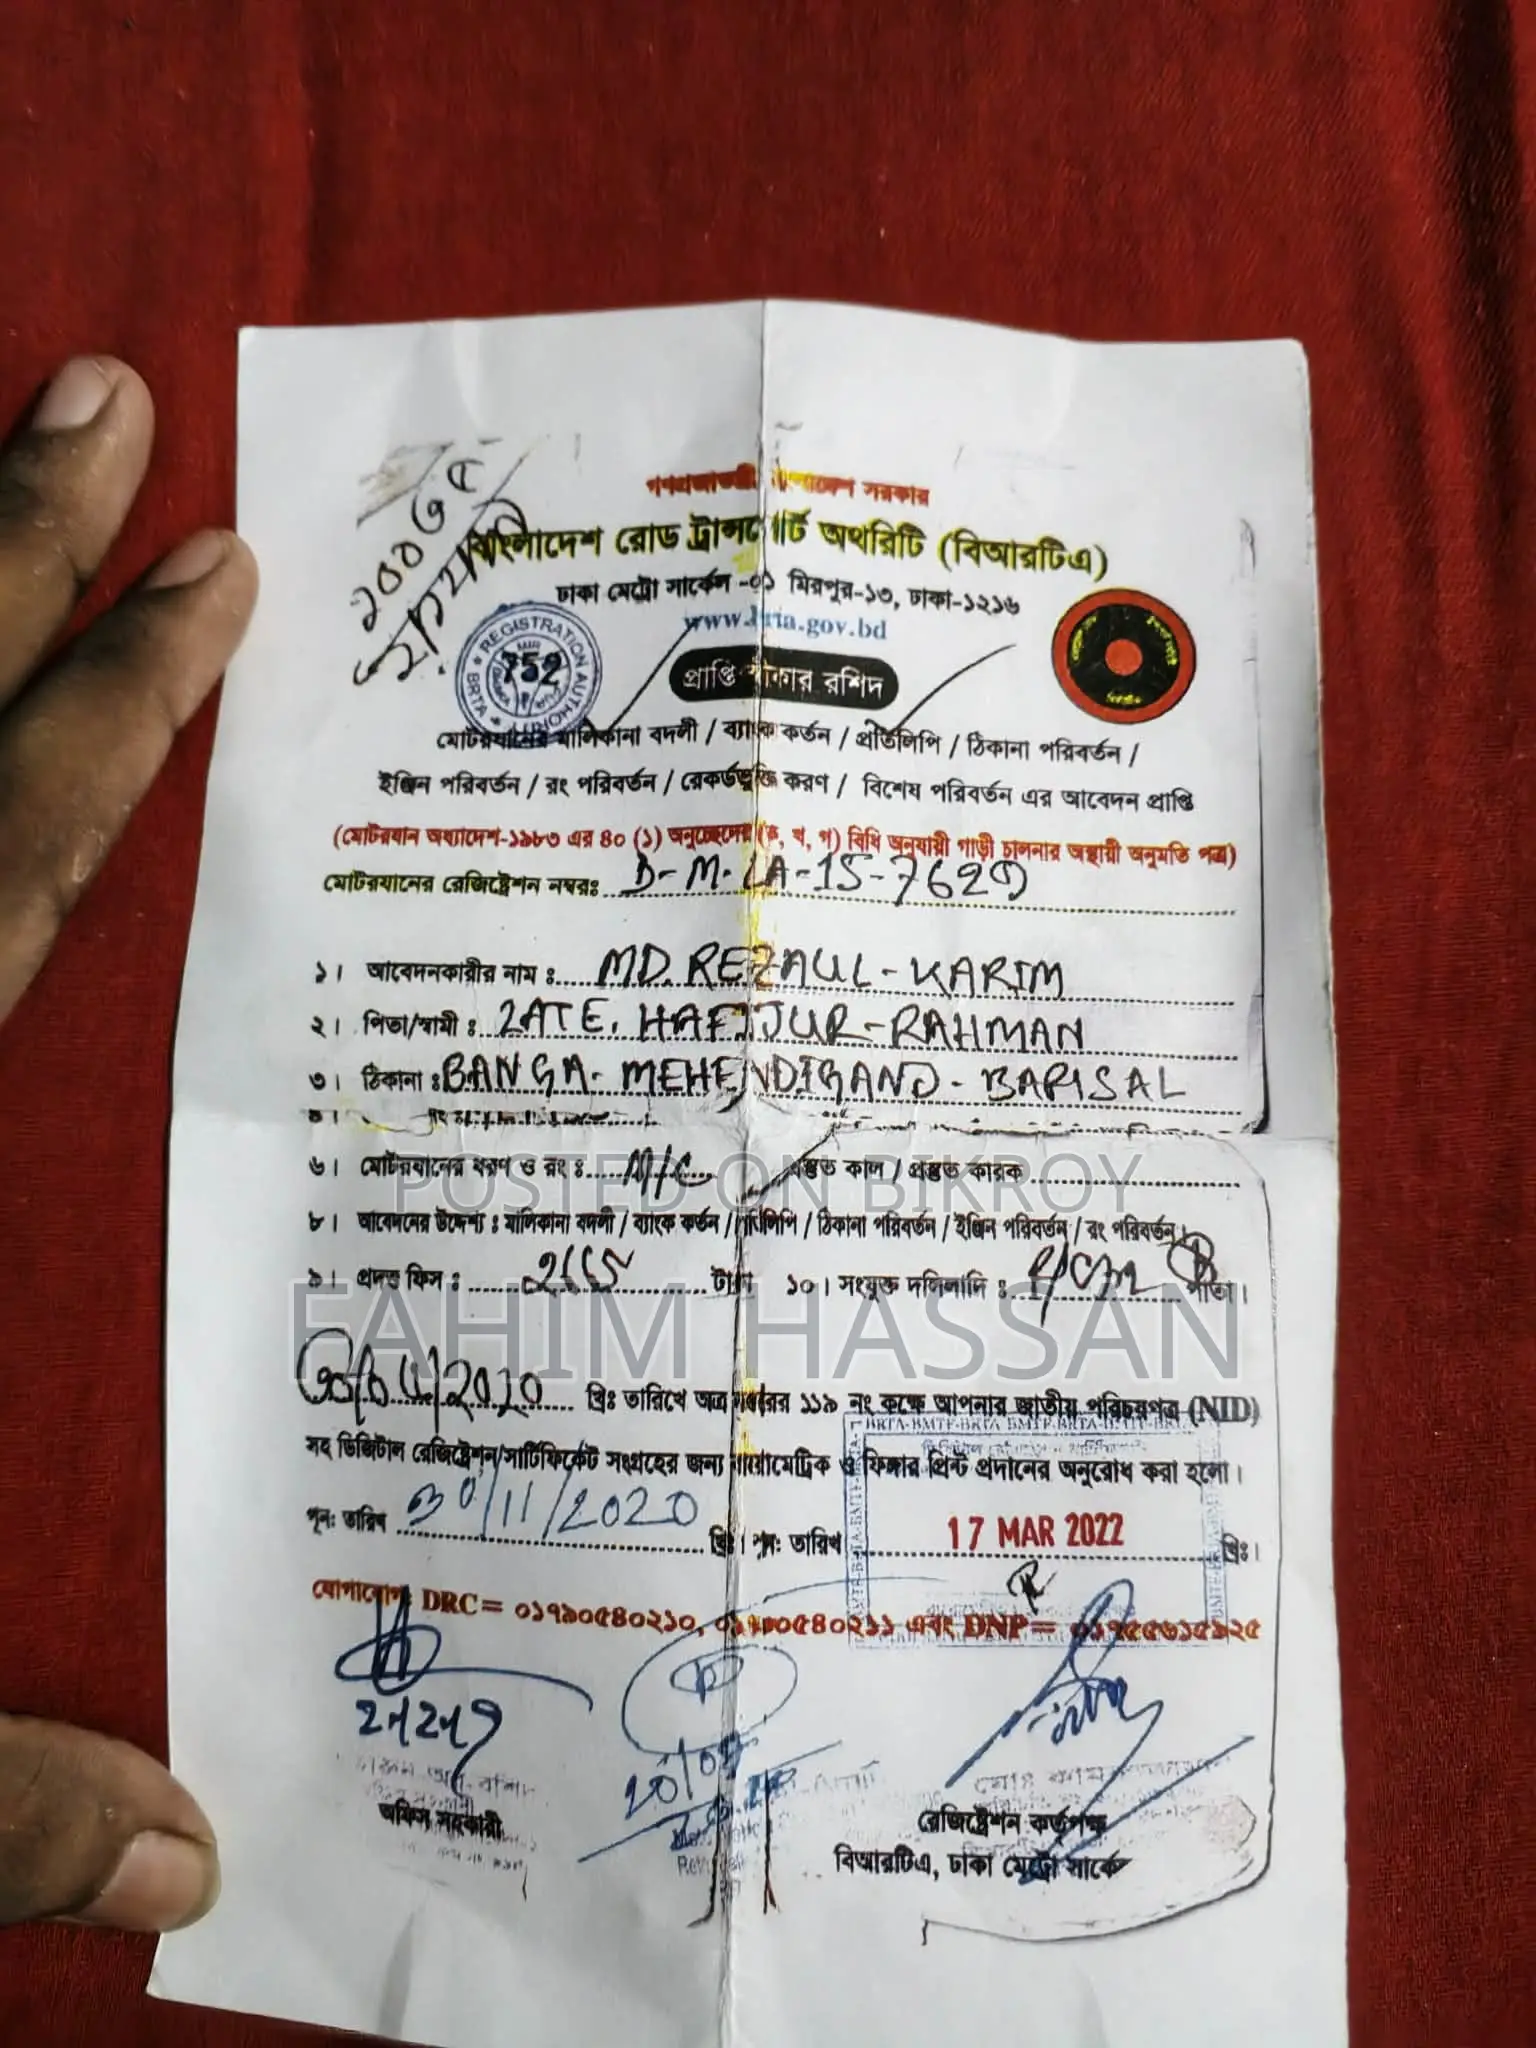 গণপ্রজাতন্ত্রী বাংলাদেশ সরকার
বাংলাদেশ রোড ট্রান্সপোর্ট অথরিটি (বিআরটিএ)
ঢাকা মেট্রো সার্কেল -০১ মিরপুর-১৩, ঢাকা-১২১৬
www.brta.gov.bd
REGISTRATION AUTHORITY
BRTA
752
প্রাপ্তি স্বীকার রশিদ
মোটরযানের মালিকানা বদলী / ব্যাংক কর্তন / প্রতিলিপি / ঠিকানা পরিবর্তন /
ইঞ্জিন পরিবর্তন / রং পরিবর্তন / রেকর্ডভুক্তি করণ / বিশেষ পরিবর্তন এর আবেদন প্রাপ্তি
(মোটরযান অধ্যাদেশ-১৯৮৩ এর ৪০ (১) অনুচ্ছেদের (ক, খ, গ) বিধি অনুযায়ী গাড়ী চালনার অস্থায়ী অনুমতি পত্র)
মোটরযানের রেজিষ্ট্রেশন নম্বরঃ D-M-LA-15-
১। আবেদনকারীর নাম : MD. REZAUL-KARIM
২। পিতা/স্বামী : LATE. HAFIJUR-RAHMAN
৩। ঠিকানা : BANGA- MEHENDIGANJ - BARISAL
৬। মোটরযানের ধরণ ও রং : M/C প্রস্তুত কাল / প্রস্তুত কারক
POSTED ON BIKROY
৮। আবেদনের উদ্দেশ্য : মালিকানা বদলী / ব্যাংক কর্তন / প্রতিলিপি / ঠিকানা পরিবর্তন / ইঞ্জিন পরিবর্তন / রং পরিবর্তন।
৯। প্রদত্ত ফিস : টাকা ১০। সংযুক্ত দলিলাদি : পাতা।
FAHIM HASSAN
খ্রিঃ তারিখে অত্র দপ্তরের ১১৯ নং কক্ষে আপনার জাতীয় পরিচয়পত্র (NID)
সহ ডিজিটাল রেজিষ্ট্রেশন/সার্টিফিকেট সংগ্রহের জন্য বায়োমেট্রিক ও ফিঙ্গার প্রিন্ট প্রদানের অনুরোধ করা হলো।
পূনঃ তারিখ 30/11/2020 খ্রিঃ। পূনঃ তারিখ 17 MAR 2022 খ্রিঃ।
যোগাযোগ: DRC= ০১৭৯০৫৪০২১০, ০১৭৯০৫৪০২১১ এবং DNP=
অফিস সহকারী
রেজিষ্ট্রেশন কর্তৃপক্ষ
বিআরটিএ, ঢাকা মেট্রো সার্কেল